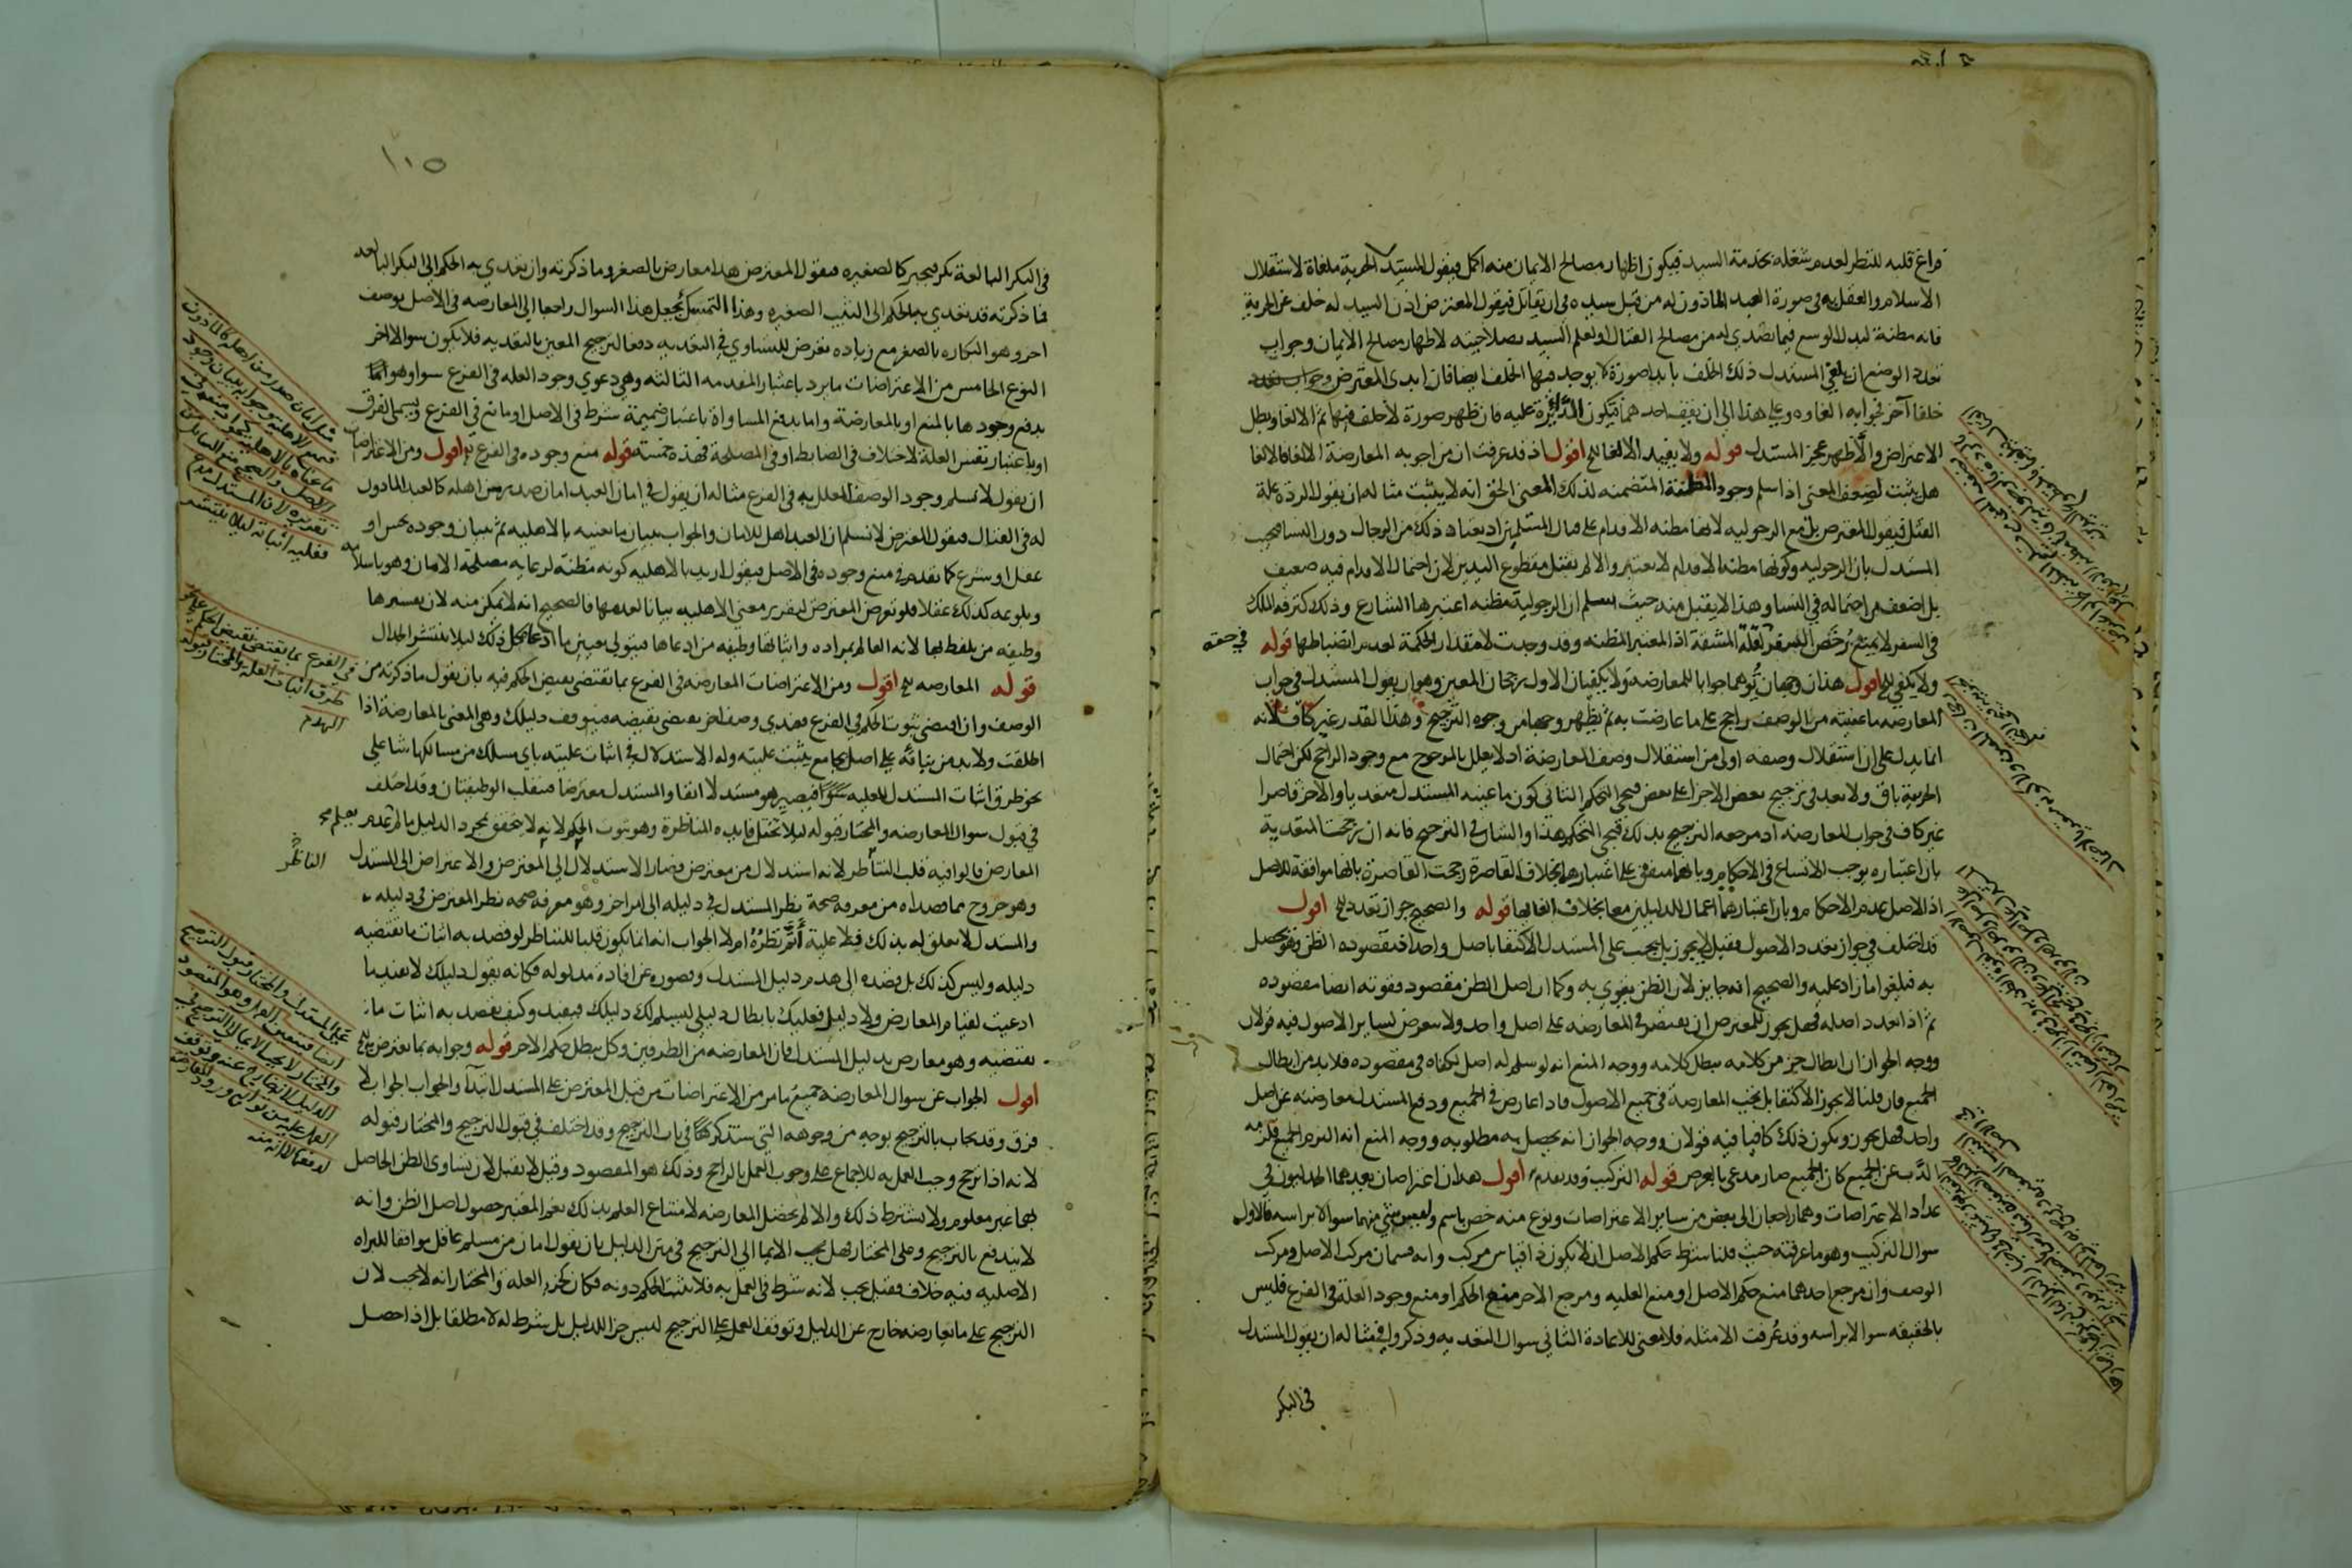 فراغ قلبه للنظر لعدم شغله بخدمة السيد فيكون اظهار مصالح الايمان منه اكمل فيقول المستدل الحرية ملغاة لاستقلال
الاسلام والعقل به في صورة العبد الماذون له من قبل سيده في ان يقاتل فيقول المعترض اذن السيد له خلف عن الحرية
فانه مظنة لبذل الوسع فيما تصدى له من مصالح القتال او لعلم السيد بصلاحيته لاظهار مصالح الايمان وجواب
تعدد الوضع ان يلغي المستدل ذلك الخلف بابداء صورة لا يوجد فيها الخلف ايضا فان ابدى المعترض
خلفا آخر فجوابه الغاوه وعلى هذا الى ان يقف احدهما فتكون الدائرة عليه فان ظهر صورة لا خلف فيها تم الالغا وبطل
الاعتراض والا ظهر عجز المستدل قوله ولا يفيد الالغا الخ اقول اذ قد عرفت ان من اجوبه المعارضة الالغا فالالغا
هل يثبت لضعف المعنى اذا سلم وجود المظنة المتضمنه لذلك المعنى الحق انه لا يثبت مثاله ان يقول الردة علة
القتل فيقول المعترض بل مع الرجوليه لانها مظنه الاقدام على قتال المسلمين اذ يعتاد ذلك من الرجال دون النسا فيجيب
المستدل بان الرجوليه وكونها مظنه الاقدام لا يعتبر والا لم يقتل مقطوع اليدين لان احتمال الاقدام فيه ضعيف
بل اضعف من احتماله في النسا وهذا لا يقبل منه حيث سلم ان الرجولية مظنه اعتبرها الشارع وذلك كترفه الملك
في السفر لا يمنع رخص السفر لقلة المشقة اذ المعتبر المظنه وقد وجدت لا مقدار الحكمة لعدم انضباطها قوله
في حقه
ولا يكفي الخ اقول هذان وجهان توهما جوابا للمعارضة ولا يكفيان الاول رجحان المعين وهو ان يقول المستدل في جواب
المعارضه ما عنيته من الوصف راجح على ما عارضت به ثم يظهر وجها من وجوه الترجيح وهذا القدر غير كاف لانه
انما يدل على ان استقلال وصفه اولى من استقلال وصف المعارضة اذ لا يعلل بالمرجوح مع وجود الراجح لكن احتمال
الجزئية باق ولا بعد في ترجيح بعض الاجزا على بعض فيجي التحكم الثاني كون ما عينه المستدل متعديا والاخر قاصرا
غير كاف في جواب المعارضه اذ مرجعه الترجيح بذلك فيجي التحكم هذا والشان في الترجيح فانه ان رجحت المتعدية
بان اعتباره يوجب الاتساع في الاحكام وبانها متفق على اعتبارها بخلاف القاصرة رجحت القاصرة بانها موافقة للاصل
اذ الاصل عدم الاحكام وبان اعتبارهما اعمال للدليلين معا بخلاف الغائها قوله والصحيح جواز تعدد الخ اقول
قد اختلف في جواز تعدد الاصول فقيل لا يجوز بل يجب على المستدل الاكتفا باصل واحد اذ مقصوده الظن وهو يحصل
به فيلغو ما زاد عليه والصحيح انه جايز لان الظن يقوى به وكما ان اصل الظن مقصود فقوته ايضا مقصوده
ثم اذا تعدد اصله فهل يجوز للمعترض ان يقتصر في المعارضه على اصل واحد ولا يتعرض لساير الاصول فيه قولان
ووجه الجواز ان ابطال جز من كلامه يبطل كلامه ووجه المنع انه لو سلم له اصل لكفاه في مقصوده فلا بد من ابطال
الجميع فان قلنا لا يجوز الاكتفا بل يجب المعارضة في جميع الاصول فاذا عارض في الجميع ودفع المستدل معارضته عن اصل
واحد فهل يجوز ويكون ذلك كافيا فيه قولان ووجه الجواز انه يحصل به مطلوبه ووجه المنع انه التزم الجميع فلزمه
الذب عن الجميع كان الجميع صار مدعى بالعرض قوله التركيب وقد تقدم اقول هذان اعتراضان يعدهما الجدليون في
عداد الاعتراضات وهما راجعان الى بعض من ساير الاعتراضات ونوع منه خص باسم وليس شي منهما سوالا براسه فالاول
سوال التركيب وهو ما عرفته حيث قلنا شرط حكم الاصل ان لا يكون ذا قياس مركب وانه قسمان مركب الاصل ومركب
الوصف وان مرجع احدهما منع حكم الاصل او منع العليه ومرجع الاخر منع الحكم او منع وجود العلة في الفرع فليس
بالحقيقه سوالا براسه وقد عرفت الامثله فلا معنى للاعادة الثاني سوال التعديه وذكروا في مثاله ان يقول المستدل
في البكر
١٠٥
في البكر البالغة بكر فيجبر كالصغيره فيقول المعترض هذا معارض بالصغر وما ذكرته وان تعدى به الحكم الى البكر البالغه
فما ذكرته قد تعدى به الحكم الى الثيب الصغيره وهذا التمثيل يجعل هذا السوال راجعا الى المعارضه في الاصل بوصف
اخر وهو البكاره بالصغر مع زياده تعرض للتساوي في التعديه دفعا لترجيح المعين بالتعديه فلا يكون سوالا اخر
النوع الخامس من الاعتراضات ما يرد باعتبار المقدمه الثالثه وهي دعوى وجود العله في الفرع سوا وهو اما
يدفع وجودها بالمنع او بالمعارضة واما بدفع المساواة باعتبار ضميمة شرط في الاصل او مانع في الفرع ويسمى الفرق
او باعتبار نفس العلة لاختلاف في الضابط او في المصلحة فهذه خمسة قوله منع وجوده في الفرع الخ اقول ومن الاعتراضات
ان يقول لا نسلم وجود الوصف المعلل به في الفرع مثاله ان يقول في امان العبد امان صدر من اهله كالعبد الماذون
له في القتال فيقول المعترض لا نسلم ان العبد اهل للامان والجواب ببيان ما يعنيه بالاهليه ثم ببيان وجوده بحس او
عقل او شرع كما تقدم في منع وجوده في الاصل فيقول اريد بالاهليه كونه مظنة لرعايه مصلحة الامان وهو باسلامه
وبلوغه كذلك عقلا فلو تعرض المعترض لتقرير معنى الاهليه بيانا لعدمها فالصحيح انه لا يمكن منه لان تفسيرها
وظيفه من يلفظ بها لانه العالم بمراده واثباتها وظيفه من ادعاها فيتولى تعيين ما ادعا كل ذلك ليلا ينتشر الجدال
قوله المعارضه الخ اقول ومن الاعتراضات المعارضه في الفرع بما يقتضي نقيض الحكم فيه بان يقول ما ذكرته من
الوصف وان اقتضى ثبوت الحكم في الفرع فعندي وصف اخر يقتضي نقيضه فيتوقف دليلك وهي المعني بالمعارضة اذا
اطلقت ولا بد من بنائه على اصل بجامع يثبت عليته وله الاستدلال في اثبات عليته باي مسلك من مسالكها شا على
نحو طرق اثبات المستدل للعليه سوا فيصير هو مستدلا انفا والمستدل معترضا فتنقلب الوظيفتان وقد اختلف
في قبول سوال المعارضه والمختار قبوله ليلا تختل فايده المناظرة وهو ثبوت الحكم لانه لا يتحقق بمجرد الدليل ما لم يعلم عدم
المعارض قالوا فيه قلب التناظر لانه استدلال من معترض فصار الاستدلال الى المعترض والاعتراض الى المستدل
وهو خروج مما قصداه من معرفه صحة نظر المستدل في دليله الى امر اخر وهو معرفه صحه نظر المعترض في دليله
والمستدل لا تعلق له بذلك فلا عليه اتم نظره ام لا الجواب انه انما يكون قلبا للتناظر لو قصد به اثبات ما يقتضيه
دليله وليس كذلك بل قصده الى هدم دليل المستدل وقصوره عن افادة مدلوله فكانه يقول دليلك لا يفيد ما
ادعيت لقيام المعارض وهو دليلي فعليك بابطال دليلي ليسلم لك دليلك فيفيد وكيف يقصد به اثبات ما
يقتضيه وهو معارض بدليل المستدل فان المعارضه من الطرفين وكل يبطل حكم الاخر قوله وجوابه بما يعترض به الخ
اقول الجواب عن سوال المعارضة جميع ما مر من الاعتراضات من قبل المعترض على المستدل ابتداء والجواب الجواب لا
فرق وقد يجاب بالترجيح بوجه من وجوهه التي ستذكرها في باب الترجيح وقد اختلف في قبول الترجيح والمختار قبوله
لانه اذا ترجح وجب العمل به للاجماع على وجوب العمل بالراجح وذلك هو المقصود وقيل لا يقبل لان تساوى الظن الحاصل
بهما غير معلوم ولا يشترط ذلك والا لم تحصل المعارضه لامتناع العلم بذلك نعم المعتبر حصول اصل الظن وانه
لا يندفع بالترجيح وعلى المختار فهل يجب الايما الى الترجيح في متن الدليل بان يقول امان من مسلم عاقل موافقا للبراه
الاصليه فيه خلاف فقيل يجب لانه شرط في العمل به فلا يثبت الحكم دونه فكان كجز العلة والمختار انه لا يجب لان
الترجيح على ما يعارضه خارج عن الدليل وتوقف العمل على الترجيح ليس جزا للدليل بل شرط له لا مطلقا بل اذا حصل